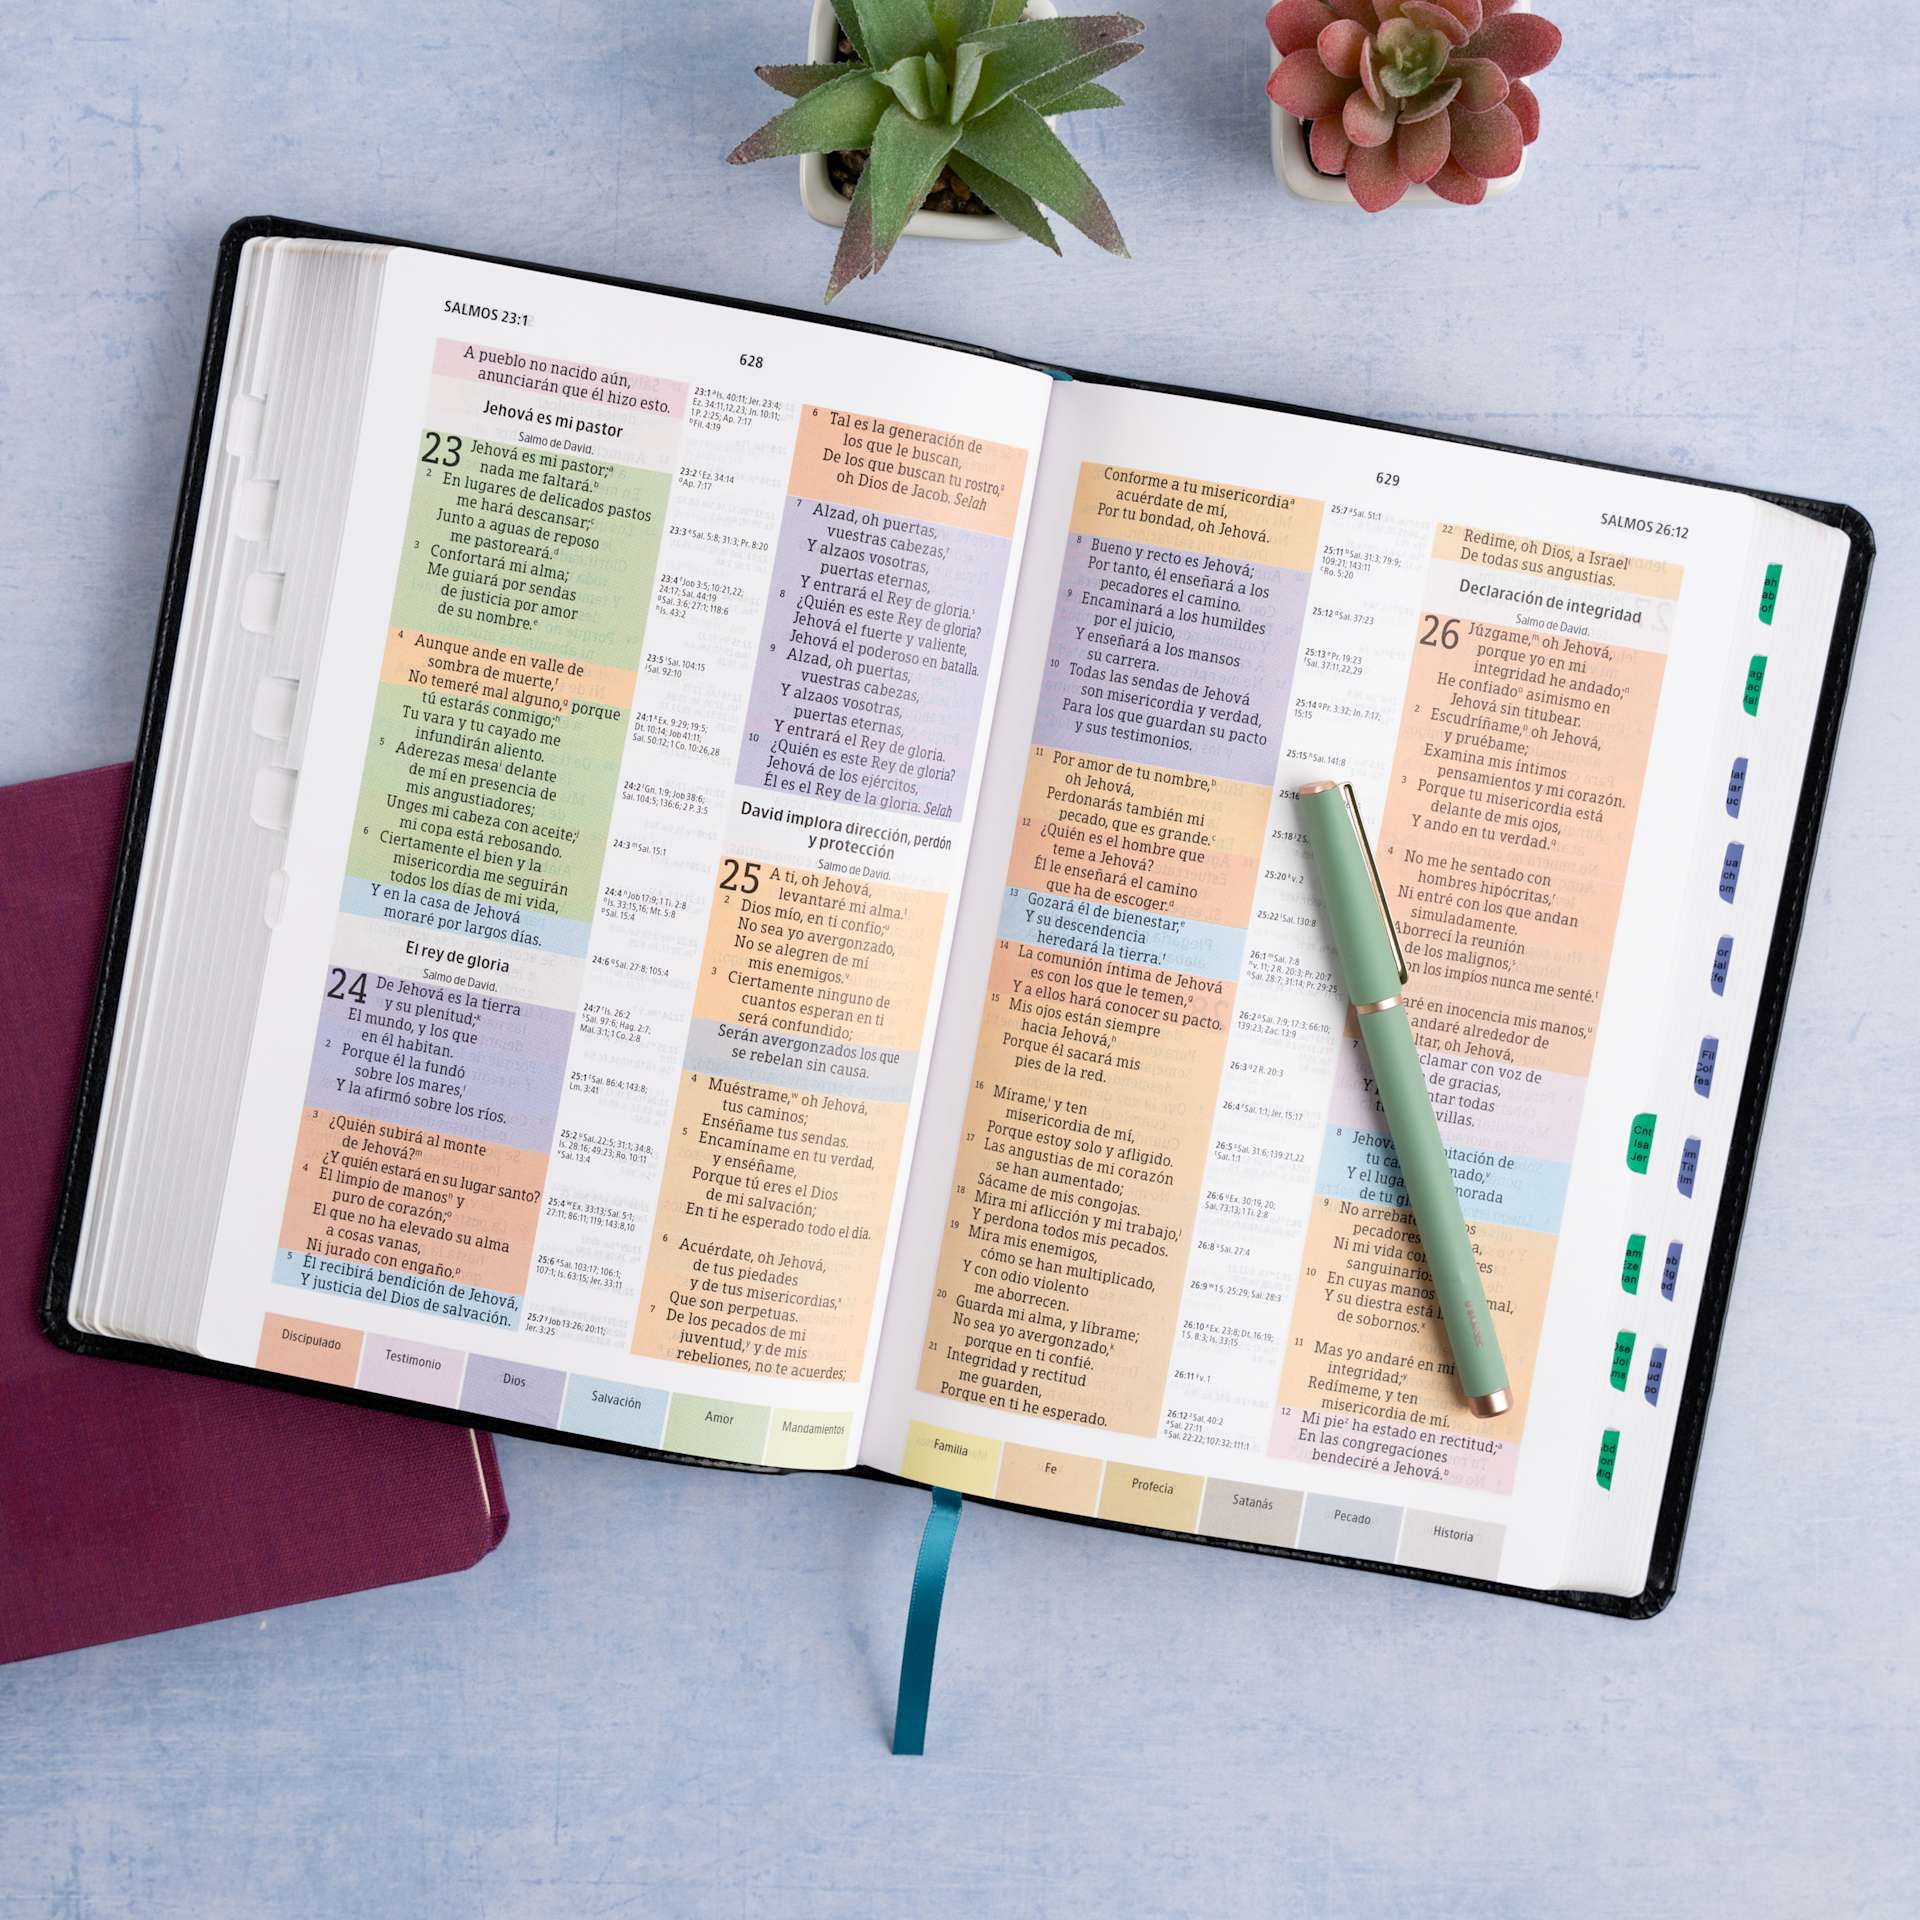 SALMOS 23:1
628
A pueblo no nacido aún,
anunciarán que él hizo esto.
Jehová es mi pastor
Salmo de David.
23 Jehová es mi pastor;ᵃ
nada me faltará.ᵇ
2 En lugares de delicados pastos
me hará descansar;ᶜ
Junto a aguas de reposo
me pastoreará.ᵈ
3 Confortará mi alma;
Me guiará por sendas
de justicia por amor
de su nombre.ᵉ
4 Aunque ande en valle de
sombra de muerte,ᶠ
No temeré mal alguno,ᵍ porque
tú estarás conmigo;ʰ
Tu vara y tu cayado me
infundirán aliento.
5 Aderezas mesaⁱ delante
de mí en presencia de
mis angustiadores;
Unges mi cabeza con aceite;ʲ
mi copa está rebosando.
6 Ciertamente el bien y la
misericordia me seguirán
todos los días de mi vida,
Y en la casa de Jehová
moraré por largos días.
El rey de gloria
Salmo de David.
24 De Jehová es la tierra
y su plenitud;ᵏ
El mundo, y los que
en él habitan.
2 Porque él la fundó
sobre los mares,ˡ
Y la afirmó sobre los ríos.
3 ¿Quién subirá al monte
de Jehová?ᵐ
¿Y quién estará en su lugar santo?
4 El limpio de manosⁿ y
puro de corazón;ᵒ
El que no ha elevado su alma
a cosas vanas,
Ni jurado con engaño.ᵖ
5 Él recibirá bendición de Jehová,
Y justicia del Dios de salvación.
23:1 ᵃIs. 40:11; Jer. 23:4;
Ez. 34:11,12,23; Jn. 10:11;
1 P. 2:25; Ap. 7:17
ᵇFil. 4:19
23:2 ᶜEz. 34:14
ᵈAp. 7:17
23:3 ᵉSal. 5:8; 31:3; Pr. 8:20
23:4 ᶠJob 3:5; 10:21,22;
24:17; Sal. 44:19
ᵍSal. 3:6; 27:1; 118:6
ʰIs. 43:2
23:5 ⁱSal. 104:15
ʲSal. 92:10
24:1 ᵏEx. 9:29; 19:5;
Dt. 10:14; Job 41:11;
Sal. 50:12; 1 Co. 10:26,28
24:2 ˡGn. 1:9; Job 38:6;
Sal. 104:5; 136:6; 2 P. 3:5
24:3 ᵐSal. 15:1
24:4 ⁿJob 17:9; 1 Ti. 2:8
ᵒIs. 33:15,16; Mt. 5:8
ᵖSal. 15:4
24:6 ᵠSal. 27:8; 105:4
24:7 ʳIs. 26:2
ˢSal. 97:6; Hag. 2:7;
Mal. 3:1; 1 Co. 2:8
25:1 ᵗSal. 86:4; 143:8;
Lm. 3:41
25:2 ᵘSal. 22:5; 31:1; 34:8;
Is. 28:16; 49:23; Ro. 10:11
ᵛSal. 13:4
25:4 ʷEx. 33:13; Sal. 5:1;
27:11; 86:11; 119; 143:8,10
25:6 ˣSal. 103:17; 106:1;
107:1; Is. 63:15; Jer. 33:11
25:7 ʸJob 13:26; 20:11;
Jer. 3:25
6 Tal es la generación de
los que le buscan,
De los que buscan tu rostro,ᵠ
oh Dios de Jacob. Selah
7 Alzad, oh puertas,
vuestras cabezas,ʳ
Y alzaos vosotras,
puertas eternas,
Y entrará el Rey de gloria.ˢ
8 ¿Quién es este Rey de gloria?
Jehová el fuerte y valiente,
Jehová el poderoso en batalla.
9 Alzad, oh puertas,
vuestras cabezas,
Y alzaos vosotras,
puertas eternas,
Y entrará el Rey de gloria.
10 ¿Quién es este Rey de gloria?
Jehová de los ejércitos,
Él es el Rey de la gloria. Selah
David implora dirección, perdón
y protección
Salmo de David.
25 A ti, oh Jehová,
levantaré mi alma.ᵗ
2 Dios mío, en ti confío;ᵘ
No sea yo avergonzado,
No se alegren de mí
mis enemigos.ᵛ
3 Ciertamente ninguno de
cuantos esperan en ti
será confundido;
Serán avergonzados los que
se rebelan sin causa.
4 Muéstrame,ʷ oh Jehová,
tus caminos;
Enséñame tus sendas.
5 Encamíname en tu verdad,
y enséñame,
Porque tú eres el Dios
de mi salvación;
En ti he esperado todo el día.
6 Acuérdate, oh Jehová,
de tus piedades
y de tus misericordias,ˣ
Que son perpetuas.
7 De los pecados de mi
juventud,ʸ y de mis
rebeliones, no te acuerdes;
Discipulado
Testimonio
Dios
Salvación
Amor
Mandamientos
629
SALMOS 26:12
Conforme a tu misericordiaᵃ
acuérdate de mí,
Por tu bondad, oh Jehová.
8 Bueno y recto es Jehová;
Por tanto, él enseñará a los
pecadores el camino.
9 Encaminará a los humildes
por el juicio,
Y enseñará a los mansos
su carrera.
10 Todas las sendas de Jehová
son misericordia y verdad,
Para los que guardan su pacto
y sus testimonios.
11 Por amor de tu nombre,ᵇ
oh Jehová,
Perdonarás también mi
pecado, que es grande.ᶜ
12 ¿Quién es el hombre que
teme a Jehová?
Él le enseñará el camino
que ha de escoger.ᵈ
13 Gozará él de bienestar,ᵉ
Y su descendencia
heredará la tierra.ᶠ
14 La comunión íntima de Jehová
es con los que le temen,ᵍ
Y a ellos hará conocer su pacto.
15 Mis ojos están siempre
hacia Jehová,ʰ
Porque él sacará mis
pies de la red.
16 Mírame,ⁱ y ten
misericordia de mí,
Porque estoy solo y afligido.
17 Las angustias de mi corazón
se han aumentado;
Sácame de mis congojas.
18 Mira mi aflicción y mi trabajo,ʲ
Y perdona todos mis pecados.
19 Mira mis enemigos,
cómo se han multiplicado,
Y con odio violento
me aborrecen.
20 Guarda mi alma, y líbrame;
No sea yo avergonzado,ᵏ
porque en ti confié.
21 Integridad y rectitud
me guarden,
Porque en ti he esperado.
25:7 ᵃSal. 51:1
25:11 ᵇSal. 31:3; 79:9;
109:21; 143:11
ᶜRo. 5:20
25:12 ᵈSal. 37:23
25:13 ᵉPr. 19:23
ᶠSal. 37:11,22,29
25:14 ᵍPr. 3:32; Jn. 7:17;
15:15
25:15 ʰSal. 141:8
25:16
25:18 ʲ2 S.
25:20 ᵏv. 2
25:22 ˡSal. 130:8
26:1 ᵐSal. 7:8
ⁿv. 11; 2 R. 20:3; Pr. 20:7
ᵒSal. 28:7; 31:14; Pr. 29:25
26:2 ᵖSal. 7:9; 17:3; 66:10;
139:23; Zac. 13:9
26:3 ᵠ2 R. 20:3
26:4 ʳSal. 1:1; Jer. 15:17
26:5 ˢSal. 31:6; 139:21,22
ᵗSal. 1:1
26:6 ᵘEx. 30:19, 20;
Sal. 73:13; 1 Ti. 2:8
26:8 ᵛSal. 27:4
26:9 ʷ1 S. 25:29; Sal. 28:3
26:10 ˣEx. 23:8; Dt. 16:19;
1 S. 8:3; Is. 33:15
26:11 ʸv. 1
26:12 ᶻSal. 40:2
ᵃSal. 27:11
ᵇSal. 22:22; 107:32; 111:1
22 Redime, oh Dios, a Israelˡ
De todas sus angustias.
Declaración de integridad
Salmo de David.
26 Júzgame,ᵐ oh Jehová,
porque yo en mi
integridad he andado;ⁿ
He confiadoᵒ asimismo en
Jehová sin titubear.
2 Escudríñame,ᵖ oh Jehová,
y pruébame;
Examina mis íntimos
pensamientos y mi corazón.
3 Porque tu misericordia está
delante de mis ojos,
Y ando en tu verdad.ᵠ
4 No me he sentado con
hombres hipócritas,ʳ
Ni entré con los que andan
simuladamente.
Aborrecí la reunión
de los malignos,ˢ
on los impíos nunca me senté.ᵗ
aré en inocencia mis manos,ᵘ
andaré alrededor de
ltar, oh Jehová,
7 clamar con voz de
de gracias,
Y ntar todas
villas.
8 Jehová, itación de
tu ca mado,ᵛ
Y el luga morada
de tu gl
9 No arrebates os
pecadores a,
Ni mi vida con res
sanguinarios
10 En cuyas manos mal,
Y su diestra está l
de sobornos.ˣ
11 Mas yo andaré en mi
integridad;ʸ
Redímeme, y ten
misericordia de mí.
12 Mi pieᶻ ha estado en rectitud;ᵃ
En las congregaciones
bendeciré a Jehová.ᵇ
Familia
Fe
Profecía
Satanás
Pecado
Historia
Cnt
Isa
Jer
Fil
Col
Tes
Tit